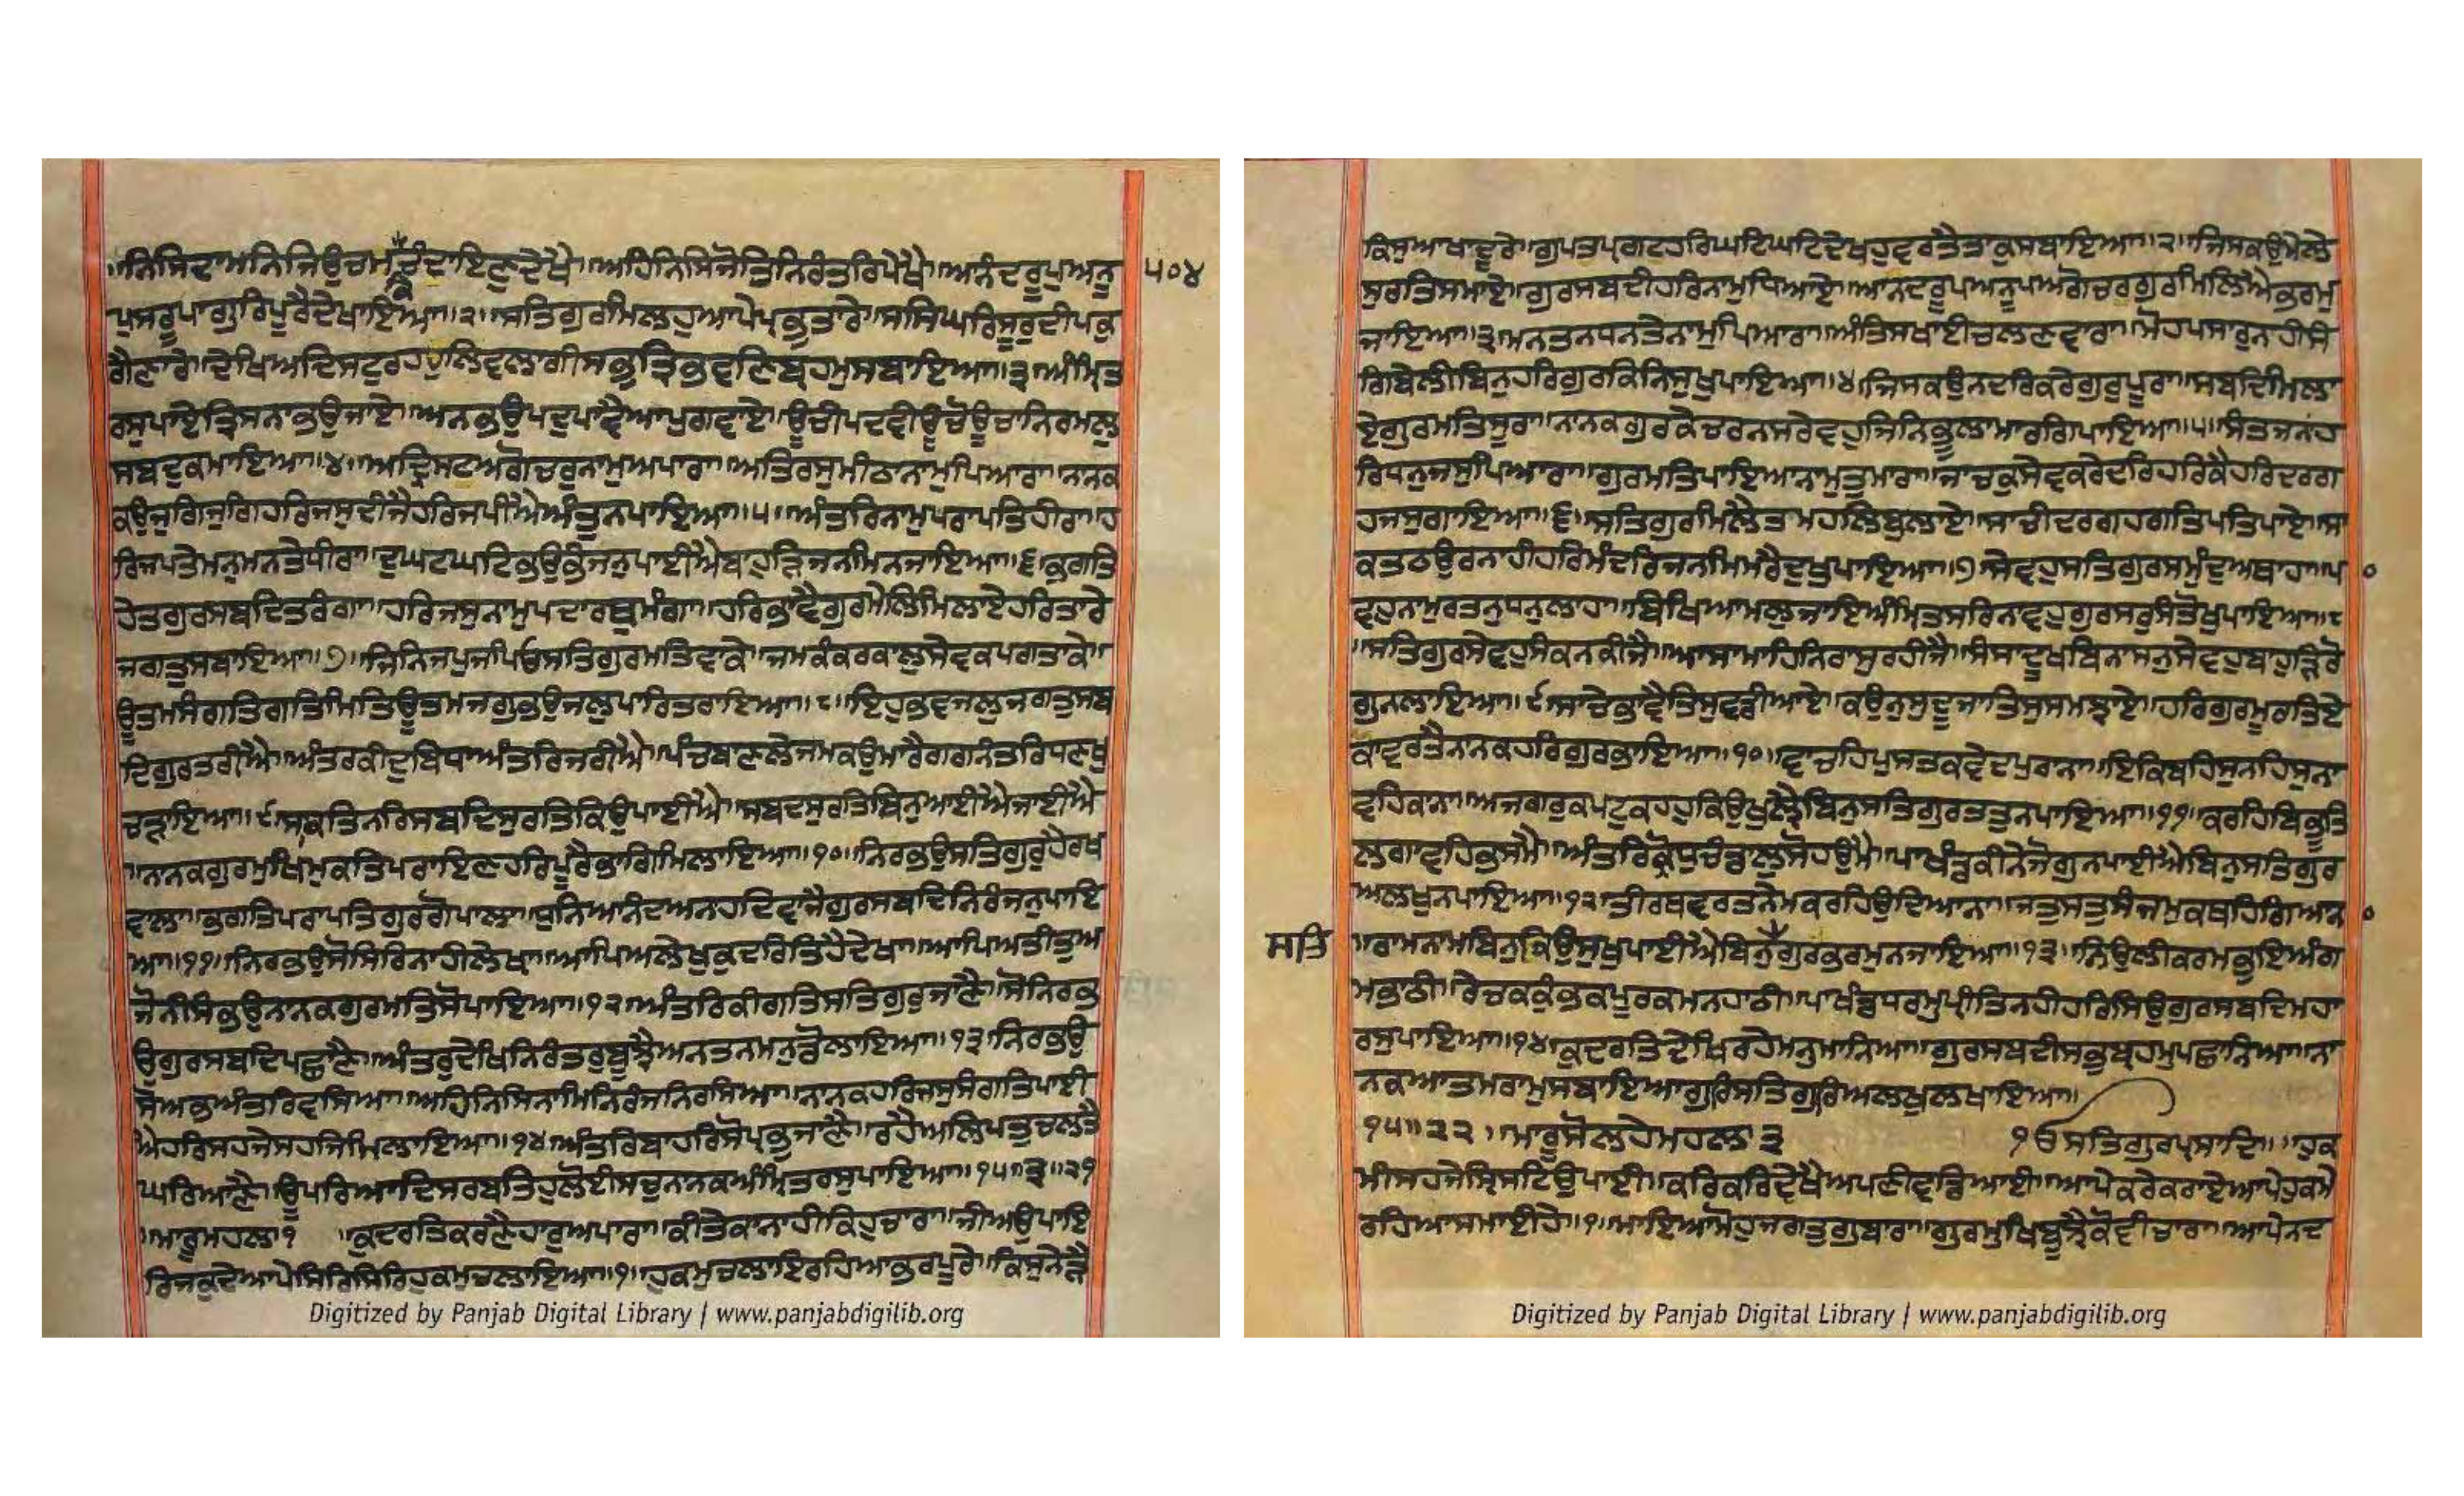 ॥ਨਿਸਿਦਾਮਨਿਜਿਉਚਮਚੰਦਾਇਣੁਦੇਖੈ॥ਅਹਿਨਿਸਿਜੋਤਿਨਿਰੰਤਰਿਪੇਖੈ॥ਅਨੰਦਰੂਪੁਅਨੂ
ਪੁਸਰੂਪਾਗੁਰਿਪੂਰੈਦੇਖਾਇਆ॥੨॥ਸਤਿਗੁਰਮਿਲਹੁਆਪੇਪ੍ਰਭੁਤਾਰੇ॥ਸਸਿਘਰਿਸੂਰੁਦੀਪਕੁ
ਗੈਣਾਰੇ॥ਦੇਖਿਅਦਿਸਟੁਰਹਹੁਲਿਵਲਾਗੀਸਭੁਤ੍ਰਿਭੁਵਣਿਬ੍ਰਹਮੁਸਬਾਇਆ॥੩॥ਅੰਮ੍ਰਿਤ
ਰਸੁਪਾਏਤ੍ਰਿਸਨਾਭਉਜਾਏ॥ਅਨਭਉਪਦੁਪਾਵੈਆਪੁਗਵਾਏ॥ਊਚੀਪਦਵੀਊਚੋਊਚਾਨਿਰਮਲੁ
ਸਬਦੁਕਮਾਇਆ॥੪॥ਅਦ੍ਰਿਸਟਅਗੋਚਰੁਨਾਮੁਅਪਾਰਾ॥ਅਤਿਰਸੁਮੀਠਾਨਾਮੁਪਿਆਰਾ॥ਨਾਨਕ
ਕਉਜੁਗਿਜੁਗਿਹਰਿਜਸੁਦੀਜੈਹਰਿਜਪੀਐਅੰਤੁਨਪਾਇਆ॥੫॥ਅੰਤਰਿਨਾਮੁਪਰਾਪਤਿਹੀਰਾ॥ਹ
ਰਿਜਪਤੇਮਨੁਮਨਤੇਧੀਰਾ॥ਦੁਘਟਘਟਿਭਉਭੰਜਨੁਪਾਈਐਬਾਹੁੜਿਜਨਮਿਨਜਾਇਆ॥੬॥ਭਗਤਿ
ਹੇਤਗੁਰਸਬਦਿਤਰੰਗਾ॥ਹਰਿਜਸੁਨਾਮੁਪਦਾਰਥੁਮੰਗਾ॥ਹਰਿਭਾਵੈਗੁਰਮੇਲਿਮਿਲਾਏਹਰਿਤਾਰੇ
ਜਗਤੁਸਬਾਇਆ॥੭॥ਜਿਨਿਜਪੁਜਪਿਓਸਤਿਗੁਰਮਤਿਵਾਕੇ॥ਜਮਕੰਕਰਕਾਲੁਸੇਵਕਪਗਤਾਕੇ॥
ਊਤਮਸੰਗਤਿਗਤਿਮਿਤਿਊਤਮਜਗੁਭਉਜਲੁਪਾਰਿਤਰਾਇਆ॥੮॥ਇਹੁਭਵਜਲੁਜਗਤੁਸਬ
ਦਿਗੁਰਤਰੀਐ॥ਅੰਤਰਕੀਦੁਬਿਧਾਅੰਤਰਿਜਰੀਐ॥ਪੰਚਬਾਣਲੇਜਮਕਉਮਾਰੈਗਗਨੰਤਰਿਧਣਖੁ
ਚੜਾਇਆ॥੯॥ਸਾਕਤਿਨਰਿਸਬਦਿਸੁਰਤਿਕਿਉਪਾਈਐ॥ਸਬਦਸੁਰਤਿਬਿਨੁਆਈਐਜਾਈਐ
॥ਨਾਨਕਗੁਰਮੁਖਿਮੁਕਤਿਪਰਾਇਣਹਰਿਪੂਰੈਭਾਗਿਮਿਲਾਇਆ॥੧੦॥ਨਿਰਭਉਸਤਿਗੁਰੁਹੈਰਖ
ਵਾਲਾ॥ਭਗਤਿਪਰਾਪਤਿਗੁਰਗੋਪਾਲਾ॥ਧੁਨਿਆਨੰਦਅਨਾਹਦਿਵਾਜੈਗੁਰਸਬਦਿਨਿਰੰਜਨੁਪਾਇ
ਆ॥੧੧॥ਨਿਰਭਉਸੋਸਿਰਿਨਾਹੀਲੇਖਾ॥ਆਪਿਅਲੇਖੁਕੁਦਰਤਿਹੈਦੇਖਾ॥ਆਪਿਅਤੀਤੁਅ
ਜੋਨੀਸੰਭਉਨਾਨਕਗੁਰਮਤਿਸੋਪਾਇਆ॥੧੨॥ਅੰਤਰਿਕੀਗਤਿਸਤਿਗੁਰੁਜਾਣੈ॥ਸੋਨਿਰਭ
ਉਗੁਰਸਬਦਿਪਛਾਣੈ॥ਅੰਤਰੁਦੇਖਿਨਿਰੰਤਰੁਬੂਝੈਅਨਤਨਮਨੁਡੋਲਾਇਆ॥੧੩॥ਨਿਰਭਉ
ਸੋਅਭਅੰਤਰਿਵਸਿਆ॥ਅਹਿਨਿਸਿਨਾਮਿਨਿਰੰਜਨਿਰਸਿਆ॥ਨਾਨਕਹਰਿਜਸੁਸੰਗਤਿਪਾਈ
ਐਹਰਿਸਹਜੇਸਹਜਿਮਿਲਾਇਆ॥੧੪॥ਅੰਤਰਿਬਾਹਰਿਸੋਪ੍ਰਭੁਜਾਣੈ॥ਰਹੈਅਲਿਪਤੁਚਲਤੇ
ਘਰਿਆਣੈ॥ਊਪਰਿਆਦਿਸਰਬਤਿਹੁਲੋਈਸਚੁਨਾਨਕਅੰਮ੍ਰਿਤਰਸੁਪਾਇਆ॥੧੫॥੩॥੨੧
॥ਮਾਰੂਮਹਲਾ੧ ॥ਕੁਦਰਤਿਕਰਣੈਹਾਰੁਅਪਾਰਾ॥ਕੀਤੇਕਾਨਾਹੀਕਿਹੁਚਾਰਾ॥ਜੀਅਉਪਾਇ
ਰਿਜਕੁਦੇਆਪੇਸਿਰਿਸਿਰਿਹੁਕਮੁਚਲਾਇਆ॥੧॥ਹੁਕਮੁਚਲਾਇਰਹਿਆਭਰਪੂਰੇ॥ਕਿਸੁਨੇੜੈ
੫੦੪
Digitized by Panjab Digital Library | www.panjabdigilib.org
ਕਿਸੁਆਖਾਦੂਰੇ॥ਗੁਪਤਪ੍ਰਗਟਹਰਿਘਟਿਘਟਿਦੇਖਹੁਵਰਤੈਤਾਕੁਸਬਾਇਆ॥੨॥ਜਿਸਕਉਮੇਲੇ
ਸੁਰਤਿਸਮਾਏ॥ਗੁਰਸਬਦੀਹਰਿਨਾਮੁਧਿਆਏ॥ਆਨਦਰੂਪਅਨੂਪਅਗੋਚਰਗੁਰਮਿਲਿਐਭਰਮੁ
ਜਾਇਆ॥੩॥ਮਨਤਨਧਨਤੇਨਾਮੁਪਿਆਰਾ॥ਅੰਤਿਸਖਾਈਚਲਣਵਾਰਾ॥ਮੋਹਪਸਾਰੁਨਹੀਸੰ
ਗਿਬੇਲੀਬਿਨੁਹਰਿਗੁਰਕਿਨਿਸੁਖੁਪਾਇਆ॥੪॥ਜਿਸਕਉਨਦਰਿਕਰੇਗੁਰੁਪੂਰਾ॥ਸਬਦਿਮਿਲਾ
ਏਗੁਰਮਤਿਸੂਰਾ॥ਨਾਨਕਗੁਰਕੇਚਰਨਸਰੇਵਹੁਜਿਨਿਭੂਲਾਮਾਰਗਿਪਾਇਆ॥੫॥ਸੰਤਜਨਾਂਹ
ਰਿਧਨੁਜਸੁਪਿਆਰਾ॥ਗੁਰਮਤਿਪਾਇਆਨਾਮੁਤੁਮਾਰਾ॥ਜਾਚਕੁਸੇਵਕਰੇਦਰਿਹਰਿਕੈਹਰਿਦਰਗ
ਹਜਸੁਗਾਇਆ॥੬॥ਸਤਿਗੁਰਮਿਲੈਤਮਹਲਿਬੁਲਾਏ॥ਸਾਚੀਦਰਗਹਗਤਿਪਤਿਪਾਏ॥ਸਾ
ਕਤਠਉਰਨਾਹੀਹਰਿਮੰਦਰਿਜਨਮਿਮਰੈਦੁਖੁਪਾਇਆ॥੭॥ਸੇਵਹੁਸਤਿਗੁਰਸਮੁੰਦੁਅਥਾਹਾ॥ਪਾ
ਵਹੁਨਾਮੁਰਤਨੁਧਨੁਲਾਹਾ॥ਬਿਖਿਆਮਲੁਜਾਇਅੰਮ੍ਰਿਤਸਰਿਨਾਵਹੁਗੁਰਸਰੁਸੰਤੋਖੁਪਾਇਆ॥੮
॥ਸਤਿਗੁਰਸੇਵਹੁਸੰਕਨਕੀਜੈ॥ਆਸਾਮਾਹਿਨਿਰਾਸੁਰਹੀਜੈ॥ਸੰਸਾਦੂਖਬਿਨਾਸਨੁਸੇਵਹੁਬਾਹੁੜਿਰੋ
ਗੁਨਲਾਇਆ॥੯॥ਸਾਚੇਭਾਵੈਤਿਸੁਵਡੀਆਏ॥ਕਉਨੁਸੁਦੂਜਾਤਿਸੁਸਮਝਾਏ॥ਹਰਿਗੁਰਮੂਰਤਿਏ
ਕਾਵਰਤੈਨਾਨਕਹਰਿਗੁਰਭਾਇਆ॥੧੦॥ਵਾਚਹਿਪੁਸਤਕਵੇਦਪੁਰਾਨਾ॥ਇਕਿਬਹਿਸੁਨਹਿਸੁਨਾ
ਵਹਿਕਾਨਾ॥ਅਜਗਰੁਕਪਟੁਕਹਹੁਕਿਉਖੁਲੈਬਿਨੁਸਤਿਗੁਰਤਤੁਨਪਾਇਆ॥੧੧॥ਕਰਹਿਬਿਭੂਤਿ
ਲਗਾਵਹਿਭਸਮੈ॥ਅੰਤਰਿਕ੍ਰੋਧੁਚੰਡਾਲੁਸੋਹਉਮੈ॥ਪਾਖੰਡਕੀਨੇਜੋਗੁਨਪਾਈਐਬਿਨੁਸਤਿਗੁਰ
ਅਲਖੁਨਪਾਇਆ॥੧੨॥ਤੀਰਥਵਰਤਨੇਮਕਰਹਿਉਦਿਆਨਾ॥ਜਤੁਸਤੁਸੰਜਮੁਕਥਹਿਗਿਆਨਾ
॥ਰਾਮਨਾਮਬਿਨੁਕਿਉਸੁਖੁਪਾਈਐਬਿਨੁਗੁਰਭਰਮੁਨਜਾਇਆ॥੧੩॥ਨਿਉਲੀਕਰਮਭੁਇਅੰਗ
ਸਤਿ
ਮਭਾਠੀ॥ਰੇਚਕਕੁੰਭਕਪੂਰਕਮਨਹਾਠੀ॥ਪਾਖੰਡਧਰਮੁਪ੍ਰੀਤਿਨਹੀਹਰਿਸਿਉਗੁਰਸਬਦਿਮਹਾ
ਰਸੁਪਾਇਆ॥੧੪॥ਕੁਦਰਤਿਦੇਖਿਰਹੇਮਨੁਮਾਨਿਆ॥ਗੁਰਸਬਦੀਸਭੁਬ੍ਰਹਮੁਪਛਾਨਿਆ॥ਨਾ
ਨਕਆਤਮਰਾਮੁਸਬਾਇਆਗੁਰਿਸਤਿਗੁਰਿਅਲਖੁਲਖਾਇਆ॥
੧੫॥੨੨॥ਮਾਰੂਸੋਲਹੇਮਹਲਾ੩ ੧ੳਸਤਿਗੁਰਪ੍ਰਸਾਦਿ॥॥ਹੁਕ
ਮੀਸਹਜੇਸ੍ਰਿਸਟਿਉਪਾਈ॥ਕਰਿਕਰਿਵੇਖੈਅਪਣੀਵਡਿਆਈ॥ਆਪੇਕਰੇਕਰਾਏਆਪੇਹੁਕਮੇ
ਰਹਿਆਸਮਾਈਹੇ॥੧॥ਮਾਇਆਮੋਹੁਜਗਤੁਗੁਬਾਰਾ॥ਗੁਰਮੁਖਿਬੂਝੈਕੋਵੀਚਾਰਾ॥ਆਪੇਨਦ
Digitized by Panjab Digital Library | www.panjabdigilib.org